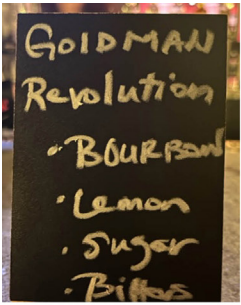 GOLDMAN
Revolution
• BOURBON
• Lemon
• Sugar
• Bitters